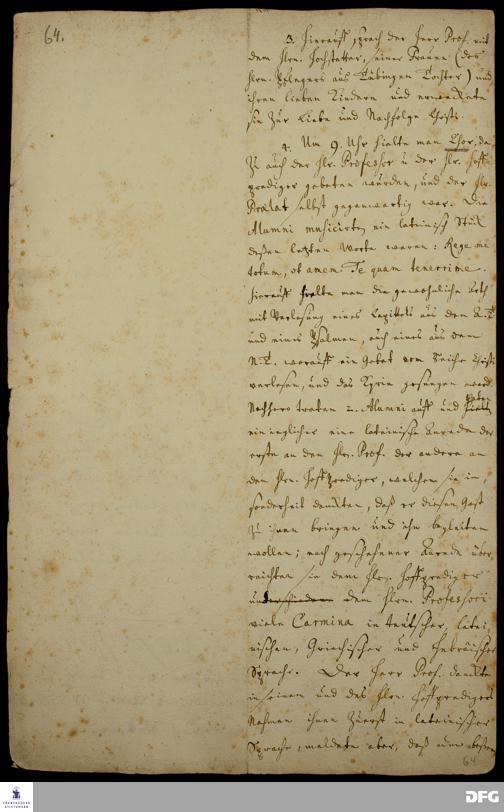 64.
3. Hierauff sprach der Herr Prof. mit
dem Hrn. Hochstetter, seiner Frauen (des
Hrn. Zelngers aus Tübingen Tochter) und
ihren lieben Kindern und ermahnte
sie zur Liebe und Nachfolge Christi.
4. Um 9. Uhr hielte man Chor, da-
zu auch der Hr. Professor u. der Hr. Hoff-
prediger gebeten wurden, und der Hr.
Prælat selbst gegenwärtig war. Die
Alumni musicirten ein lateinisch Stück
deßen letzten Worte waren: Rege me
totum, ut amem Te quam tenerrime.
Hierauff hielte man die gewöhnliche Beth
mit Verlesung eines Capittels aus dem A.T.
und eines Psalmen, auch eines aus dem
N.T. worauff ein Gebet vom Reiche Christi
verlesen, und das Kyrie gesungen ward.
Nachhero traten 2. Alumni auff und hielten
ein ieglicher eine lateinische Anrede der
erste an den Hrn. Prof. der andere an
den Hrn. Hoffprediger, welchem sie in-
sonderheit danckten, daß er diesen Gast
zu ihnen bringen und ihn begleiten
wollen; nach geschehener Anrede über-
reichten sie dem Hrn. Hoffprediger
und dem Hrn. Professori
viele Carmina in teutscher, latei-
nischer, Griechischer und Hebräischer
Sprache. Der Herr Prof. danckte
in seinem und des Hrn. Hoffpredigers
Nahmen ihnen zuerst in lateinischer
Sprache, meldete aber, daß nun
64
FRANCKESCHE
STIFTUNGEN
DFG